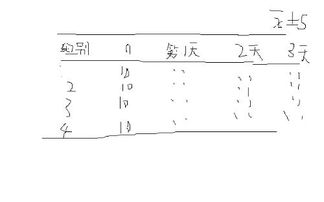 x̄±S
组别 n 第1天 2天 3天
10
2 10
3 10
4 10